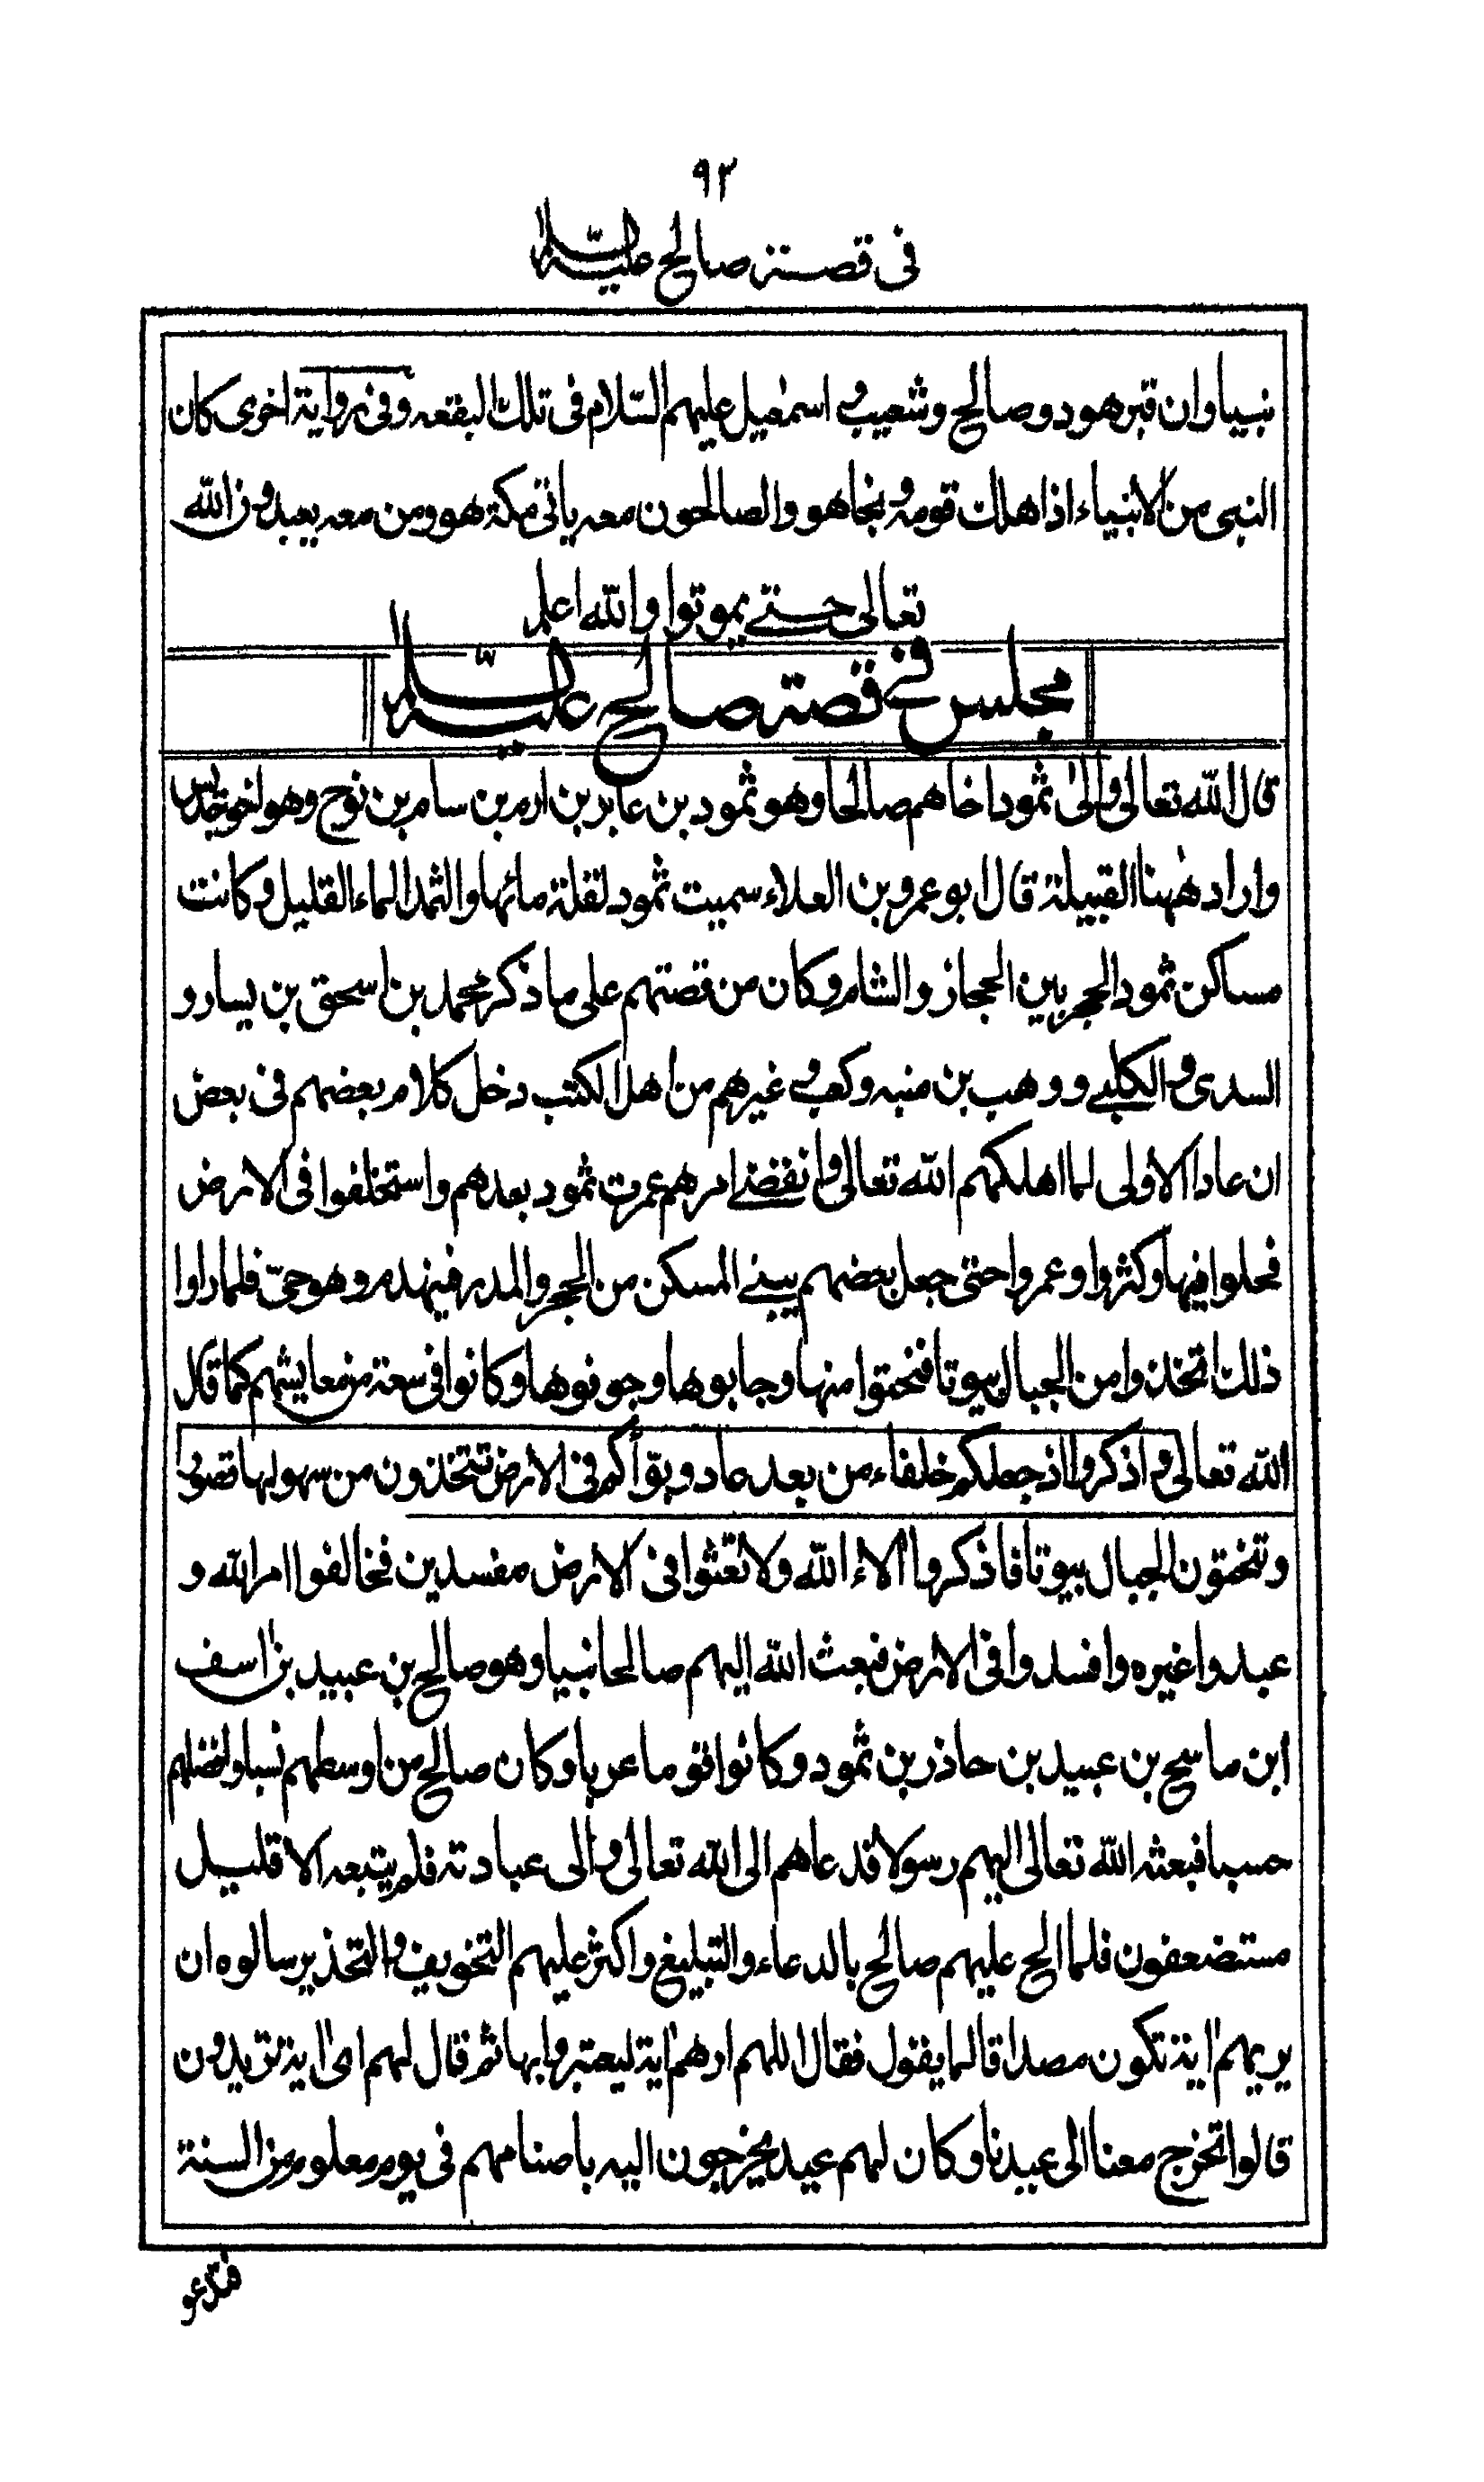 ٩٣
فى قصة صالح عليه السلام
نبيا وان قبر هود وصالح وشعيب و اسمعيل عليهم السّلام فى تلك البقعه وفى رواية اخرى كان
النبى من الانبياء اذا هلك قومه ونجا هو والصالحون معه ياتى مكة هو ومن معه يعبدون الله
تعالى حتے يموتوا والله اعلم
مجلس فے قصة صالح عليه السّلام
قال الله تعالى والىٰ ثمود اخاهم صالحا وهو ثمود بن عابر بن ارم بن سام بن نوح وهو اخو جديس
واراد ههنا القبيلة قال ابو عمرو بن العلاء سميت ثمود لقلة مائها والثمد الماء القليل وكانت
مساكن ثمود الحجر بين الحجاز والشام وكان من قصتهم على ما ذكر محمد بن اسحق بن يسار و
السدى والكلبے و وهب بن منبه وكعب و غيرهم من اهل الكتب دخل كلام بعضهم فى بعض
ان عادا الاولى لما اهلكهم الله تعالى وانقضے امرهم عمرت ثمود بعدهم واستخلفوا فى الارض
فحلوا فيها وكثروا وعمروا حتى جعل بعضهم يبنے المسكن من الحجر والمدر فينهدم وهو حىّ فلما راوا
ذلك اتخذوا من الجبال بيوتا فنحتوا منها وجابوها وجوفوها وكانوا فى سعة من معايشهم كما قال
الله تعالى واذكروا اذ جعلكم خلفاء من بعد عاد وبوّأكم فى الارض تتخذون من سهولها قصورا
وتنحتون الجبال بيوتا فاذكروا الاء الله ولا تعثوا فى الارض مفسدين فخالفوا امر الله و
عبدوا غيره وافسدوا فى الارض فبعث الله اليهم صالحا نبيا وهو صالح بن عبيد بن اسف
ابن ماسح بن عبيد بن حاذر بن ثمود وكانوا قوما عربا وكان صالح من اوسطهم نسبا وافضلهم
حسبا فبعثه الله تعالى اليهم رسولا فدعاهم الى الله تعالى والى عبادته فلم يتبعه الا قليل
مستضعفون فلما الح عليهم صالح بالدعاء والتبليغ واكثر عليهم التخويف والتحذير سالوه ان
يريهم اية تكون مصداقا لما يقول فقال اللهم ارهم اية ليعتبروا بها ثم قال لهم اى اية تريدون
قالوا تخرج معنا الى عيدنا وكان لهم عيد يخرجون اليه باصنامهم فى يوم معلوم من السنة
فتدعو